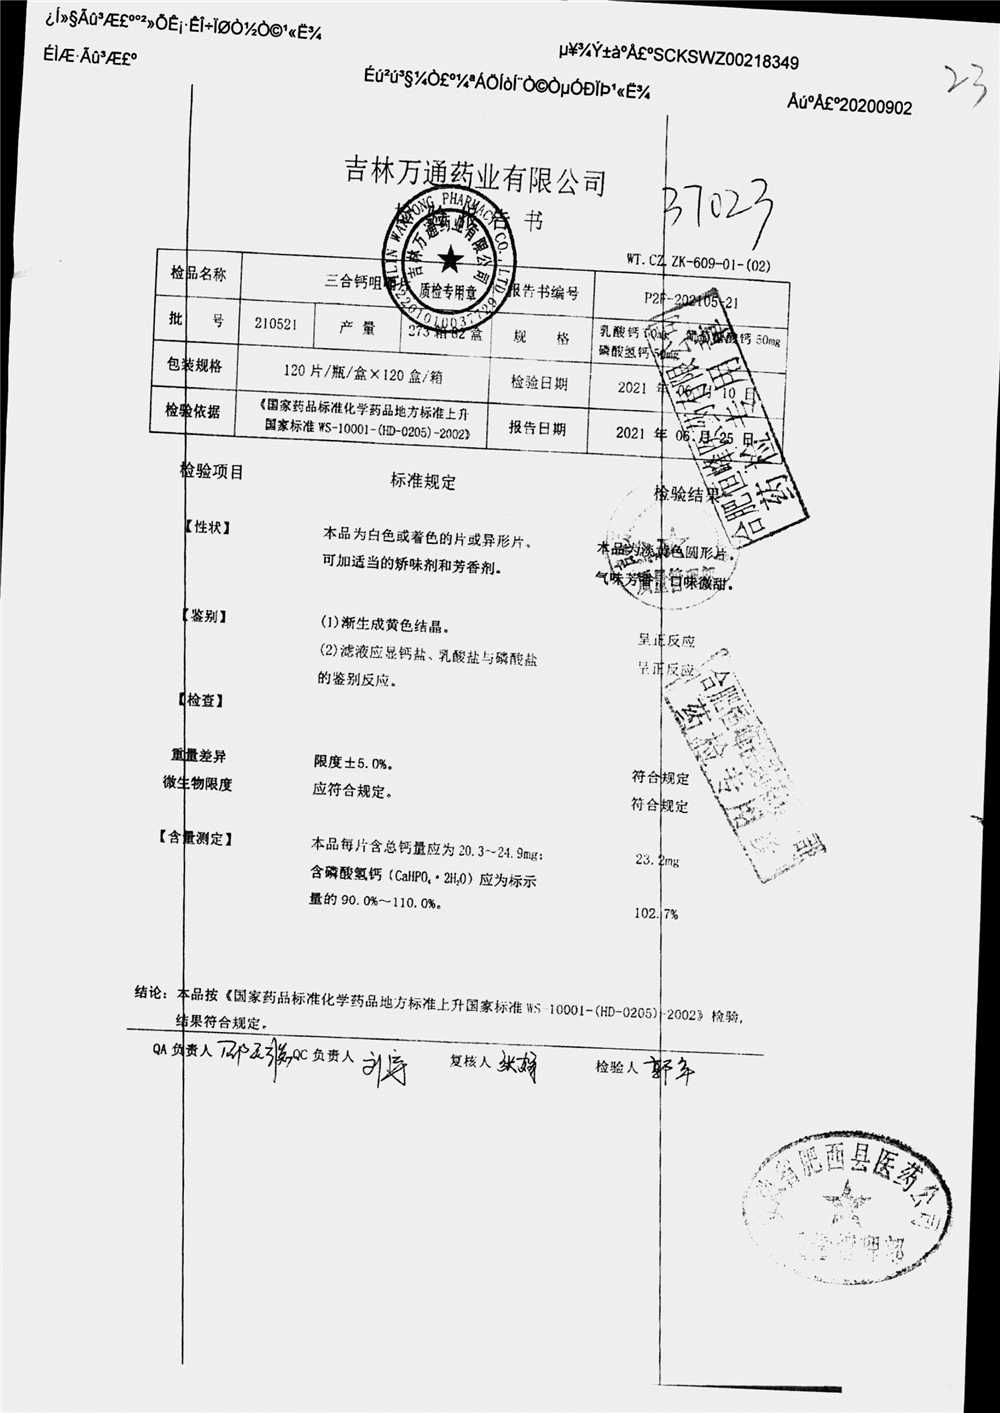 ¿Í»§Ãû³Æ£º°²»ÕÊ¡·ÊÎ÷ÏØÒ½Ò©¹«Ë¾
µ¥¾Ý±àºÅ£ºSCKSWZ00218349
ÉÌÆ·Ãû³Æ£º
Éú²ú³§¼Ò£º¼ªÁÖÍòÍ¨Ò©ÒµÓÐÏÞ¹«Ë¾
ÅúºÅ£º20200902
23
吉林万通药业有限公司
书
37023
WT.CZ.ZK-609-01-(02)
检品名称 三合钙咀 报告书编号 P2F-202105-21
批 号 210521 产 量 273箱82盒 规 格 乳酸钙 50mg
磷酸氢钙 50mg
包装规格 120片/瓶/盒×120盒/箱 检验日期 2021 年 06 月 10 日
检验依据 《国家药品标准化学药品地方标准上升
国家标准 WS-10001-(HD-0205)-2002》 报告日期 2021 年 06 月 25 日
检验项目 标准规定 检验结果
【性状】 本品为白色或着色的片或异形片、 本品为淡黄色圆形片。
可加适当的矫味剂和芳香剂。 气味芳香，口味微甜。
【鉴别】 (1)渐生成黄色结晶。 呈正反应
(2)滤液应显钙盐、乳酸盐与磷酸盐 呈正反应
的鉴别反应。
【检查】
重量差异 限度±5.0%。 符合规定
微生物限度 应符合规定。 符合规定
【含量测定】 本品每片含总钙量应为20.3～24.9mg; 23.2mg
含磷酸氢钙（CaHPO₄·2H₂O）应为标示
量的90.0%～110.0%。 102.7%
结论：本品按《国家药品标准化学药品地方标准上升国家标准 WS-10001-(HD-0205)-2002》检验,
结果符合规定。
QA 负责人 QC 负责人 刘 复核人 张 检验人 郭
JILIN WANTONG PHARMACY CO., LTD
吉林万通药业有限公司
质检专用章
2201010037729
药检专用
质量管理部
药检专用章
安徽省肥西县医药公司
质量管理部